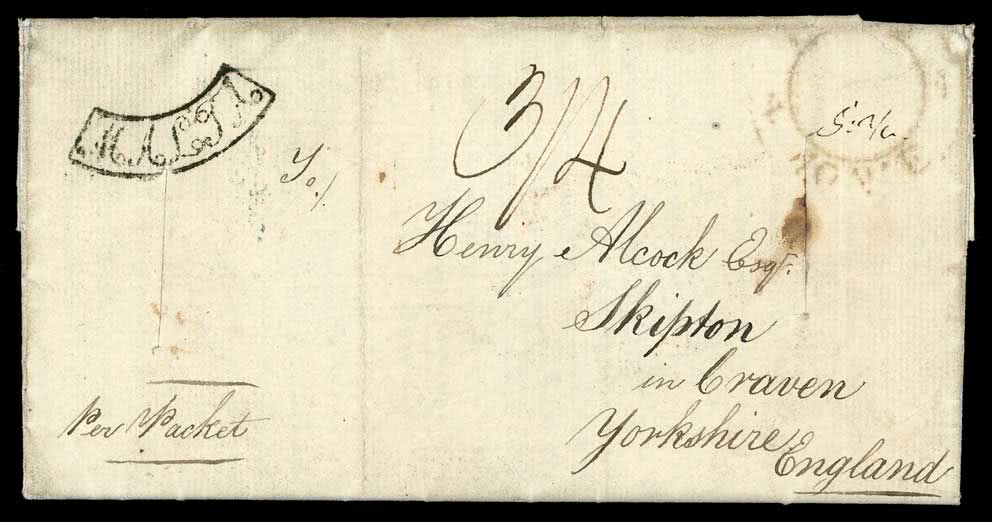 MALTA
3/4
To/
Henry Alcock Esqr.
Skipton
in Craven
Yorkshire
England
Per Packet